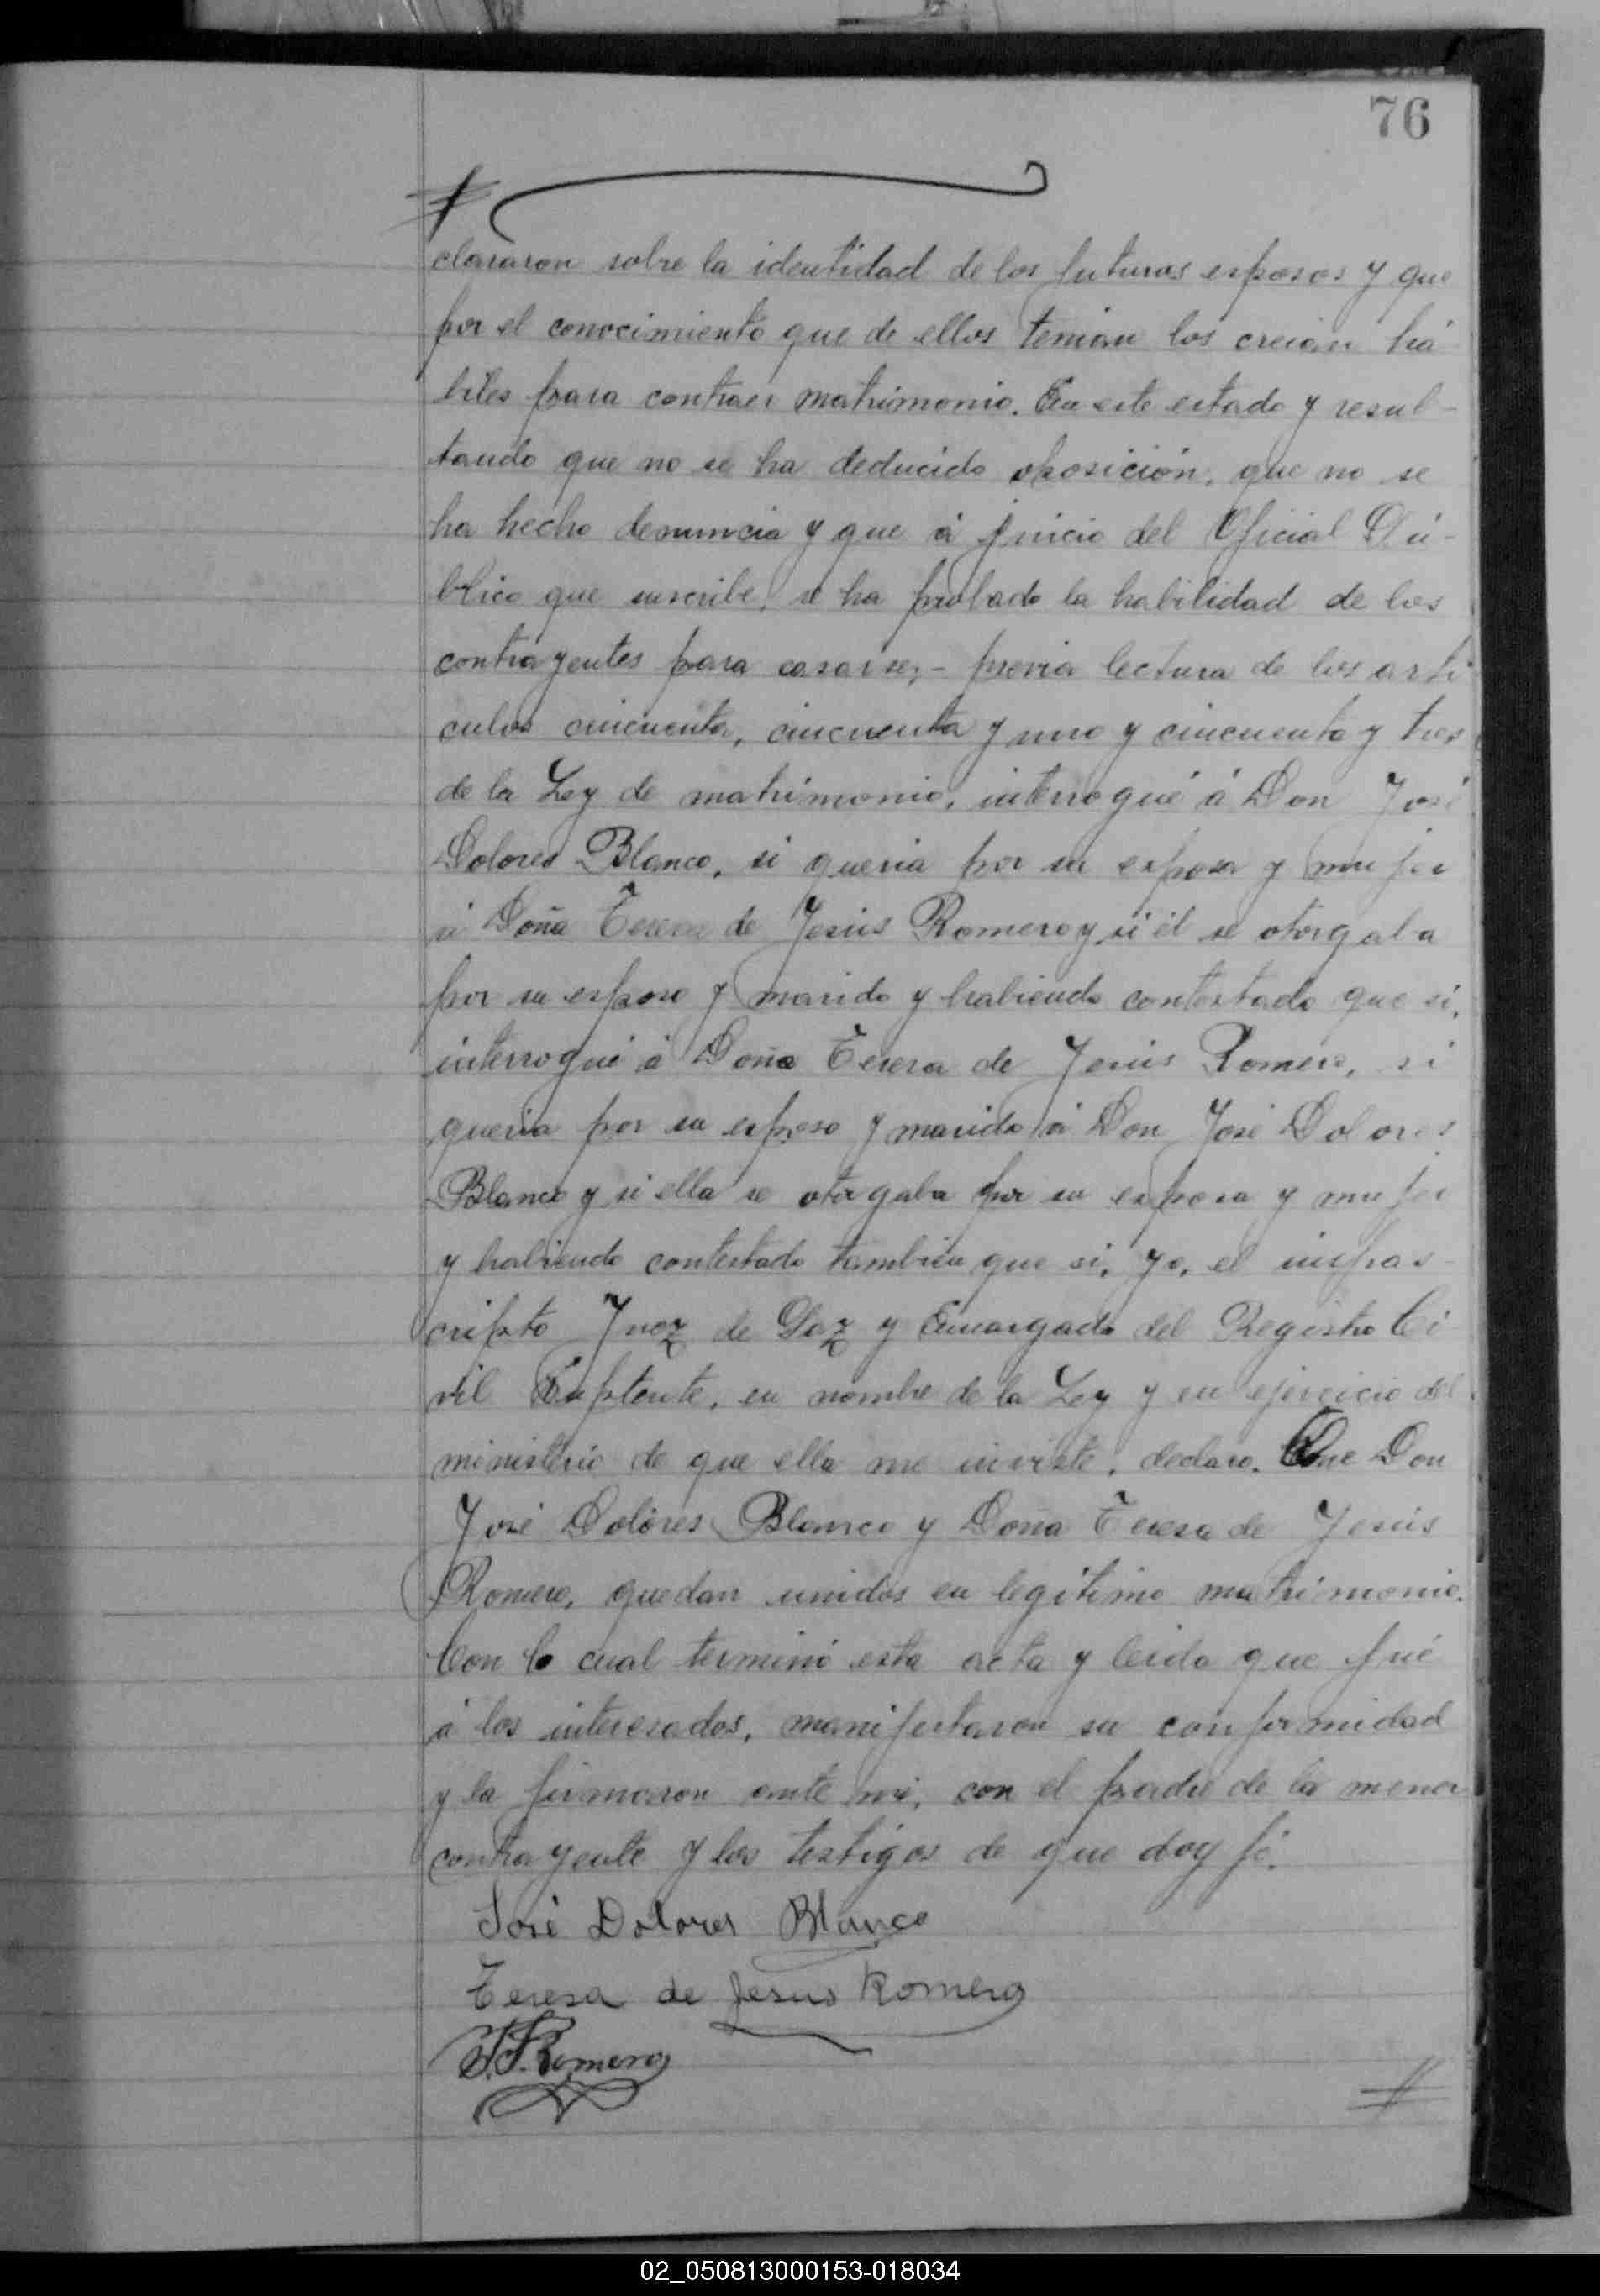 76
clararon sobre la identidad de los futuros esposos y que
por el conocimiento que de ellos tenian los creian há
biles para contraer matrimonio. En este estado y resul-
tando que no se ha deducido oposición, que no se
ha hecho denuncia y que á juicio del Oficial Pú-
blico que suscribe, se ha probado la habilidad de los
contrayentes para casarse,- previa lectura de los arti
culos cincuenta, cincuenta y uno y cincuenta y tres
de la Ley de matrimonio, interrogué á Don José
Dolores Blanco, si queria por su esposa y mujer
á Doña Teresa de Jesús Romero y si él se otorgaba
por su esposo y marido y habiendo contestado que si,
interrogué á Doña Teresa de Jesús Romero, si
queria por su esposo y marido á Don José Dolores
Blanco y si ella se otorgaba por su esposa y mujer
y habiendo contestado tambien que si, yo, el infras
cripto Juez de Paz y Encargado del Registro Ci
vil Suplente, en nombre de la Ley y en ejercicio del
ministerio de que ella me inviste, declaro. Que Don
José Dolores Blanco y Doña Teresa de Jesús
Romero, quedan unidos en legítimo matrimonio.
Con lo cual terminó esta acta y leida que fué
á los interesados, manifestaron su conformidad
y la firmaron ante mi, con el padre de la menor
contrayente y los testigos de que doy fé.
José Dolores Blanco
Teresa de Jesus Romero
Romero
02_050813000153-018034